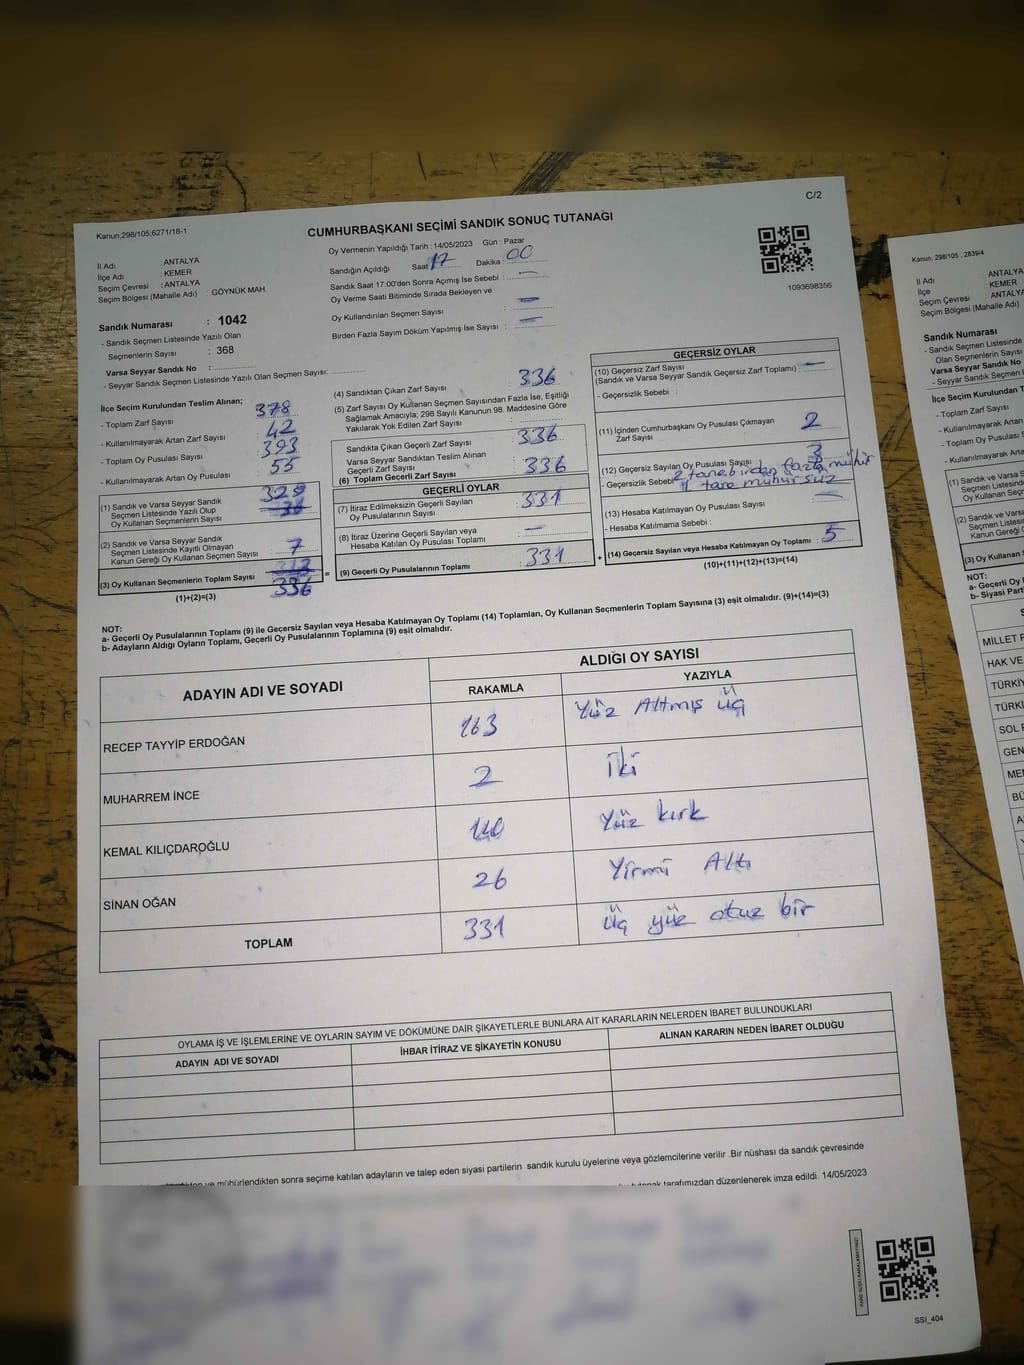 C/2
Kanun;298/105;6271/18-1
CUMHURBAŞKANI SEÇİMİ SANDIK SONUÇ TUTANAĞI
Oy Vermenin Yapıldığı Tarih : 14/05/2023 Gün : Pazar
İl Adı : ANTALYA
İlçe Adı : KEMER
Seçim Çevresi : ANTALYA
Seçim Bölgesi (Mahalle Adı) : GÖYNÜK MAH.
Sandığın Açıldığı Saat : 17 Dakika : 00
Sandık Saat 17:00'den Sonra Açımış İse Sebebi : —
Oy Verme Saati Bitiminde Sırada Bekleyen ve
Oy Kullandırılan Seçmen Sayısı : —
Birden Fazla Sayım Döküm Yapılmış İse Sayısı : —
1093698356
Sandık Numarası : 1042
- Sandık Seçmen Listesinde Yazılı Olan
Seçmenlerin Sayısı : 368
Varsa Seyyar Sandık No :
- Seyyar Sandık Seçmen Listesinde Yazılı Olan Seçmen Sayısı:
İlçe Seçim Kurulundan Teslim Alınan;
- Toplam Zarf Sayısı : 378
- Kullanılmayarak Artan Zarf Sayısı : 42
- Toplam Oy Pusulası Sayısı : 393
- Kullanılmayarak Artan Oy Pusulası : 55
(1) Sandık ve Varsa Seyyar Sandık
Seçmen Listesinde Yazılı Olup
Oy Kullanan Seçmenlerin Sayısı : 329
(2) Sandık ve Varsa Seyyar Sandık
Seçmen Listesinde Kayıtlı Olmayan
Kanun Gereği Oy Kullanan Seçmen Sayısı : 7
(3) Oy Kullanan Seçmenlerin Toplam Sayısı : 336
(1)+(2)=(3)
(4) Sandıktan Çıkan Zarf Sayısı : 336
(5) Zarf Sayısı Oy Kullanan Seçmen Sayısından Fazla İse, Eşitliği
Sağlamak Amacıyla; 298 Sayılı Kanunun 98. Maddesine Göre
Yakılarak Yok Edilen Zarf Sayısı :
Sandıkta Çıkan Geçerli Zarf Sayısı : 336
Varsa Seyyar Sandıktan Teslim Alınan
Geçerli Zarf Sayısı :
(6) Toplam Geçerli Zarf Sayısı : 336
GEÇERLİ OYLAR
(7) İtiraz Edilmeksizin Geçerli Sayılan
Oy Pusulalarının Sayısı : 331
(8) İtiraz Üzerine Geçerli Sayılan veya
Hesaba Katılan Oy Pusulası Toplamı : —
(9) Geçerli Oy Pusulalarının Toplamı : 331
GEÇERSİZ OYLAR
(10) Geçersiz Zarf Sayısı : —
(Sandık ve Varsa Seyyar Sandık Geçersiz Zarf Toplamı)
- Geçersizlik Sebebi :
(11) İçinden Cumhurbaşkanı Oy Pusulası Çıkmayan
Zarf Sayısı : 2
(12) Geçersiz Sayılan Oy Pusulası Sayısı : 3
- Geçersizlik Sebebi 2 tane birden fazla mühür
1 tane mühürsüz
(13) Hesaba Katılmayan Oy Pusulası Sayısı : —
- Hesaba Katılmama Sebebi :
(14) Geçersiz Sayılan veya Hesaba Katılmayan Oy Toplamı : 5
(10)+(11)+(12)+(13)=(14)
NOT:
a- Geçerli Oy Pusulalarının Toplamı (9) ile Geçersiz Sayılan veya Hesaba Katılmayan Oy Toplamı (14) Toplamları, Oy Kullanan Seçmenlerin Toplam Sayısına (3) eşit olmalıdır. (9)+(14)=(3)
b- Adayların Aldığı Oyların Toplamı, Geçerli Oy Pusulalarının Toplamına (9) eşit olmalıdır.
ADAYIN ADI VE SOYADI
ALDIĞI OY SAYISI
RAKAMLA YAZIYLA
RECEP TAYYİP ERDOĞAN 163 Yüz Altmış üç
MUHARREM İNCE 2 iki
KEMAL KILIÇDAROĞLU 140 Yüz kırk
SİNAN OĞAN 26 Yirmi Altı
TOPLAM 331 üç yüz otuz bir
OYLAMA İŞ VE İŞLEMLERİNE VE OYLARIN SAYIM VE DÖKÜMÜNE DAİR ŞİKAYETLERLE BUNLARA AİT KARARLARIN NELERDEN İBARET BULUNDUKLARI
ADAYIN ADI VE SOYADI İHBAR İTİRAZ VE ŞİKAYETİN KONUSU ALINAN KARARIN NEDEN İBARET OLDUĞU
ve mühürlendikten sonra seçime katılan adayların ve talep eden siyasi partilerin sandık kurulu üyelerine veya gözlemcilerine verilir .Bir nüshası da sandık çevresinde
tutanak tarafımızdan düzenlenerek imza edildi. 14/05/2023
SSİ_404
Kanun, 298/105 , 2839/4
İl Adı : ANTALYA
İlçe : KEMER
Seçim Çevresi : ANTALYA
Seçim Bölgesi (Mahalle Adı)
Sandık Numarası
- Sandık Seçmen Listesinde
Olan Seçmenlerin Sayısı
Varsa Seyyar Sandık No
- Seyyar Sandık Seçmen
İlçe Seçim Kurulundan Tes
- Toplam Zarf Sayısı
- Kullanılmayarak Artan
- Toplam Oy Pusulası S
- Kullanılmayarak Artan
(1) Sandık ve Varsa Seyy
Seçmen Listesinde Ya
Oy Kullanan Seçmen
(2) Sandık ve Varsa
Seçmen Listesinde
Kanun Gereği Oy
(3) Oy Kullanan
NOT:
a- Geçerli Oy
b- Siyasi Part
MİLLET
HAK VE
TÜRKİY
TÜRKİ
SOL
GEN